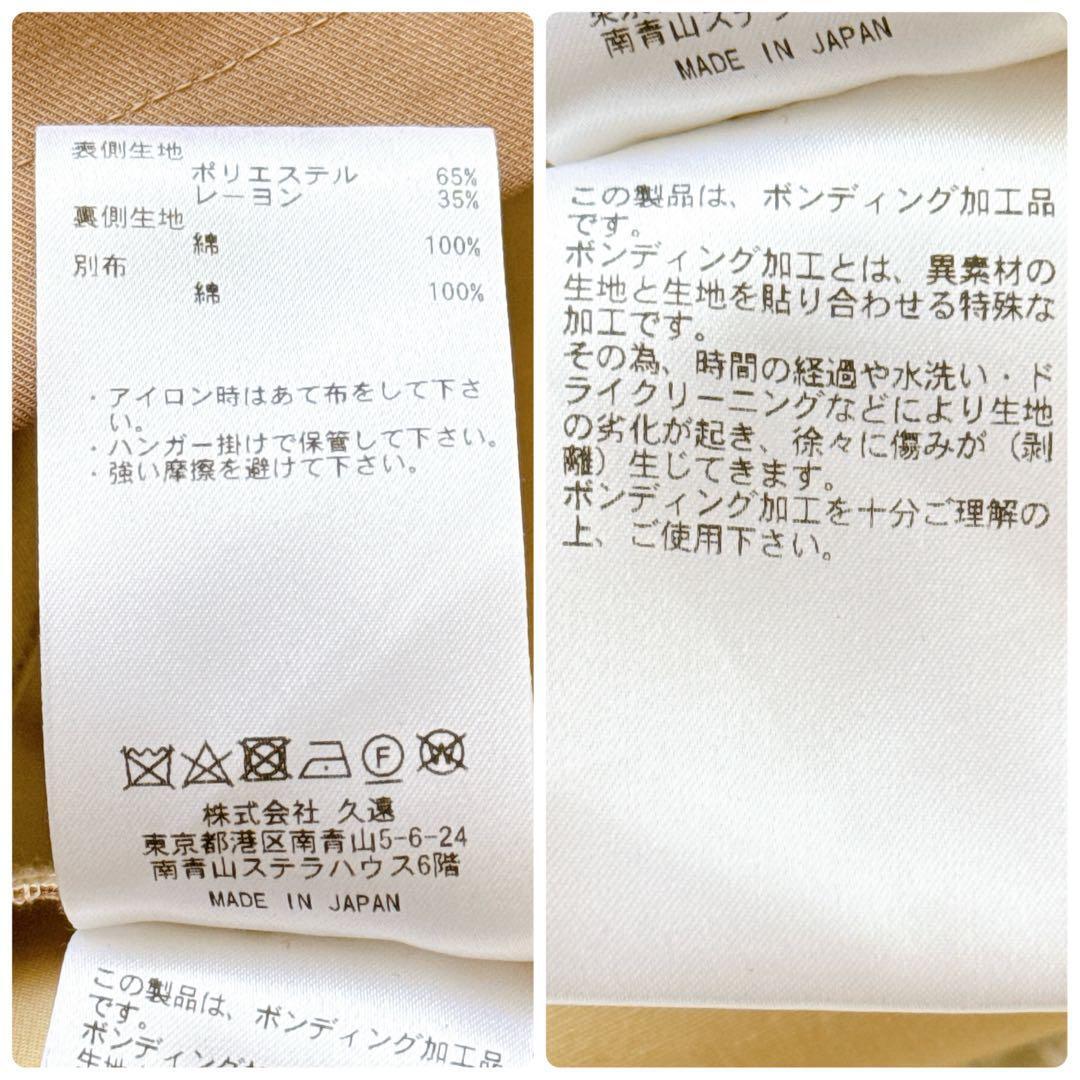 表側生地
ポリエステル 65%
レーヨン 35%
裏側生地
綿 100%
別布
綿 100%
・アイロン時はあて布をして下さ
い。
・ハンガー掛けで保管して下さい。
・強い摩擦を避けて下さい。
F W
株式会社 久遠
東京都港区南青山5-6-24
南青山ステラハウス6階
MADE IN JAPAN
この製品は、ボンディング加工品
です。
ボンディング加
南青山ステラハウス
MADE IN JAPAN
この製品は、ボンディング加工品
です。
ボンディング加工とは、異素材の
生地と生地を貼り合わせる特殊な
加工です。
その為、時間の経過や水洗い・ド
ライクリーニングなどにより生地
の劣化が起き、徐々に傷みが（剥
離）生じてきます。
ボンディング加工を十分ご理解の
上、ご使用下さい。